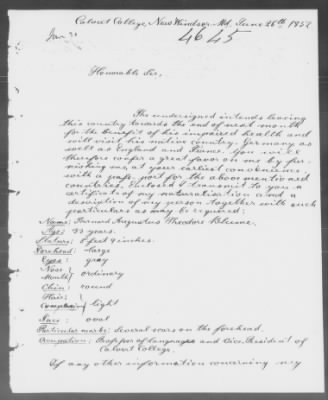 Calvert College, New Windsor, Md. June 26th 1852
4645
Honorable Sir,
The undersigned intends leaving
this country towards the end of next month
for the benefit of his impaired health and
will visit his native country Germany as
well as England and France. You will
therefore confer a great favor on me by fur-
nishing me, at your earliest convenience,
with a passport for the above mentioned
countries. Enclosed I transmit to you a
certificate of my naturalization and a
description of my person together with such
particulars as may be required:
Name: Augustus Theodore
Age: 33 years.
Stature: 5 feet 9 inches.
Forehead: large
Eyes: gray
Nose
Mouth } ordinary
Chin: round
Hair:
Complexion } light
Face: oval
Particular marks: Several scars on the forehead.
Occupation: Professor of Languages and Vice-President of
Calvert College.
If any other information concerning my